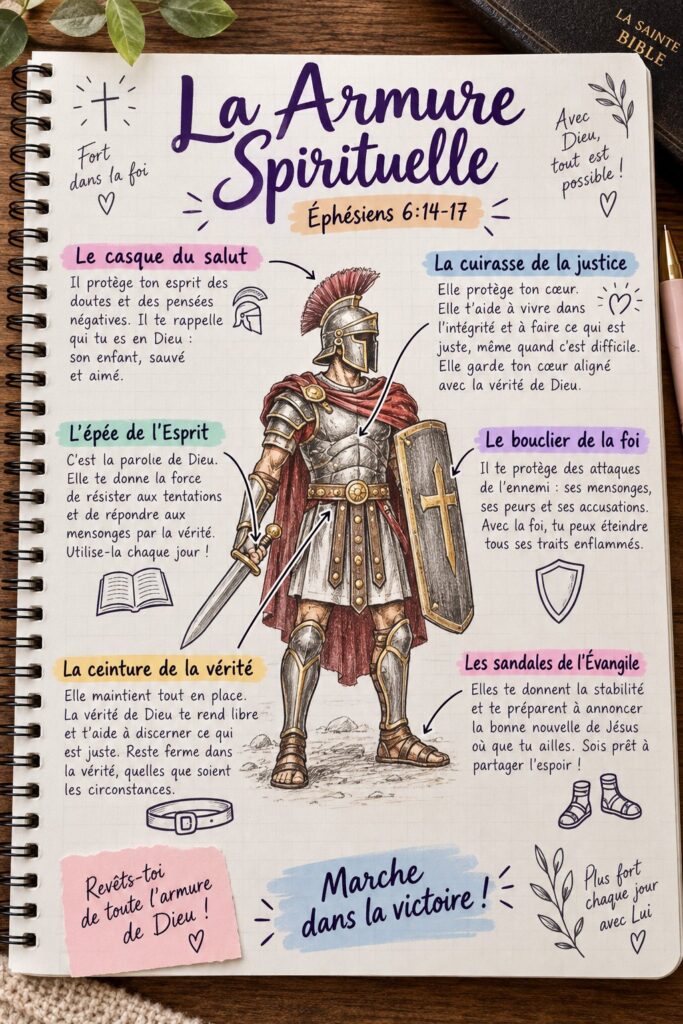 LA SAINTE
BIBLE
La Armure
Spirituelle
Éphésiens 6:14-17
Fort
dans la foi
Avec
Dieu,
tout est
possible !
Le casque du salut
Il protège ton esprit des
doutes et des pensées
négatives. Il te rappelle
qui tu es en Dieu :
son enfant, sauvé
et aimé.
La cuirasse de la justice
Elle protège ton cœur.
Elle t'aide à vivre dans
l'intégrité et à faire ce qui est
juste, même quand c'est difficile.
Elle garde ton cœur aligné
avec la vérité de Dieu.
L'épée de l'Esprit
C'est la parolie de Dieu.
Elle te donne la force
de résister aux tentations
et de répondre aux
mensonges par la vérité.
Utilise-la chaque jour !
Le bouclier de la foi
Il te protège des attaques
de l'ennemi : ses mensonges,
ses peurs et ses accusations.
Avec la foi, tu peux éteindre
tous ses traits enflammés.
La ceinture de la vérité
Elle maintient tout en place.
La vérité de Dieu te rend libre
et t'aide à discerner ce qui
est juste. Reste ferme dans
la vérité, quelles que soient
les circonstances.
Les sandales de l'Évangile
Elles te donnent la stabilité
et te préparent à annoncer
la bonne nouvelle de Jésus
où que tu ailles. Sois prêt à
partager l'espoir !
Revêts-toi
de toute l'armure
de Dieu !
Marche
dans la victoire !
Plus fort
chaque jour
avec Lui